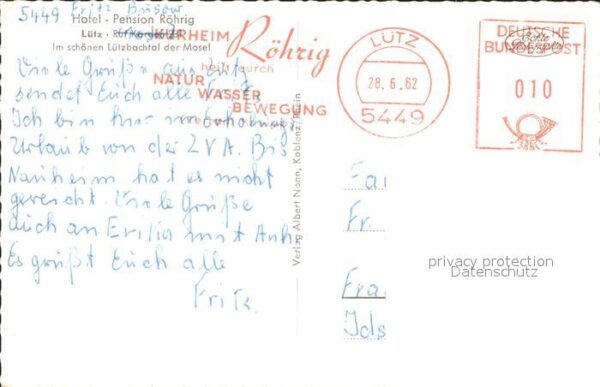 5449 Fritz Büsow
Hotel - Pension Röhrig
Lütz -
Im schönen Lützbachtal der Mosel
KURHEIM
Röhrig
heilt durch
NATUR
WASSER
BEWEGUNG
LÜTZ
28.6.62
5449
DEUTSCHE
BUNDESPOST
010
Viele Grüße aus Lütz
sendet Euch alle Fritz
Ich bin hier im Erholungs
Urlaub von der LVA. Bis
Nauheim hat es nicht
gereicht. Viele Grüße
auch an mit Anh
Es grüßt Euch alle
Fritz.
Verlag Albert Nann, Koblenz/Rhein
Fa
Fr.
Fra
Ids
privacy protection
Datenschutz